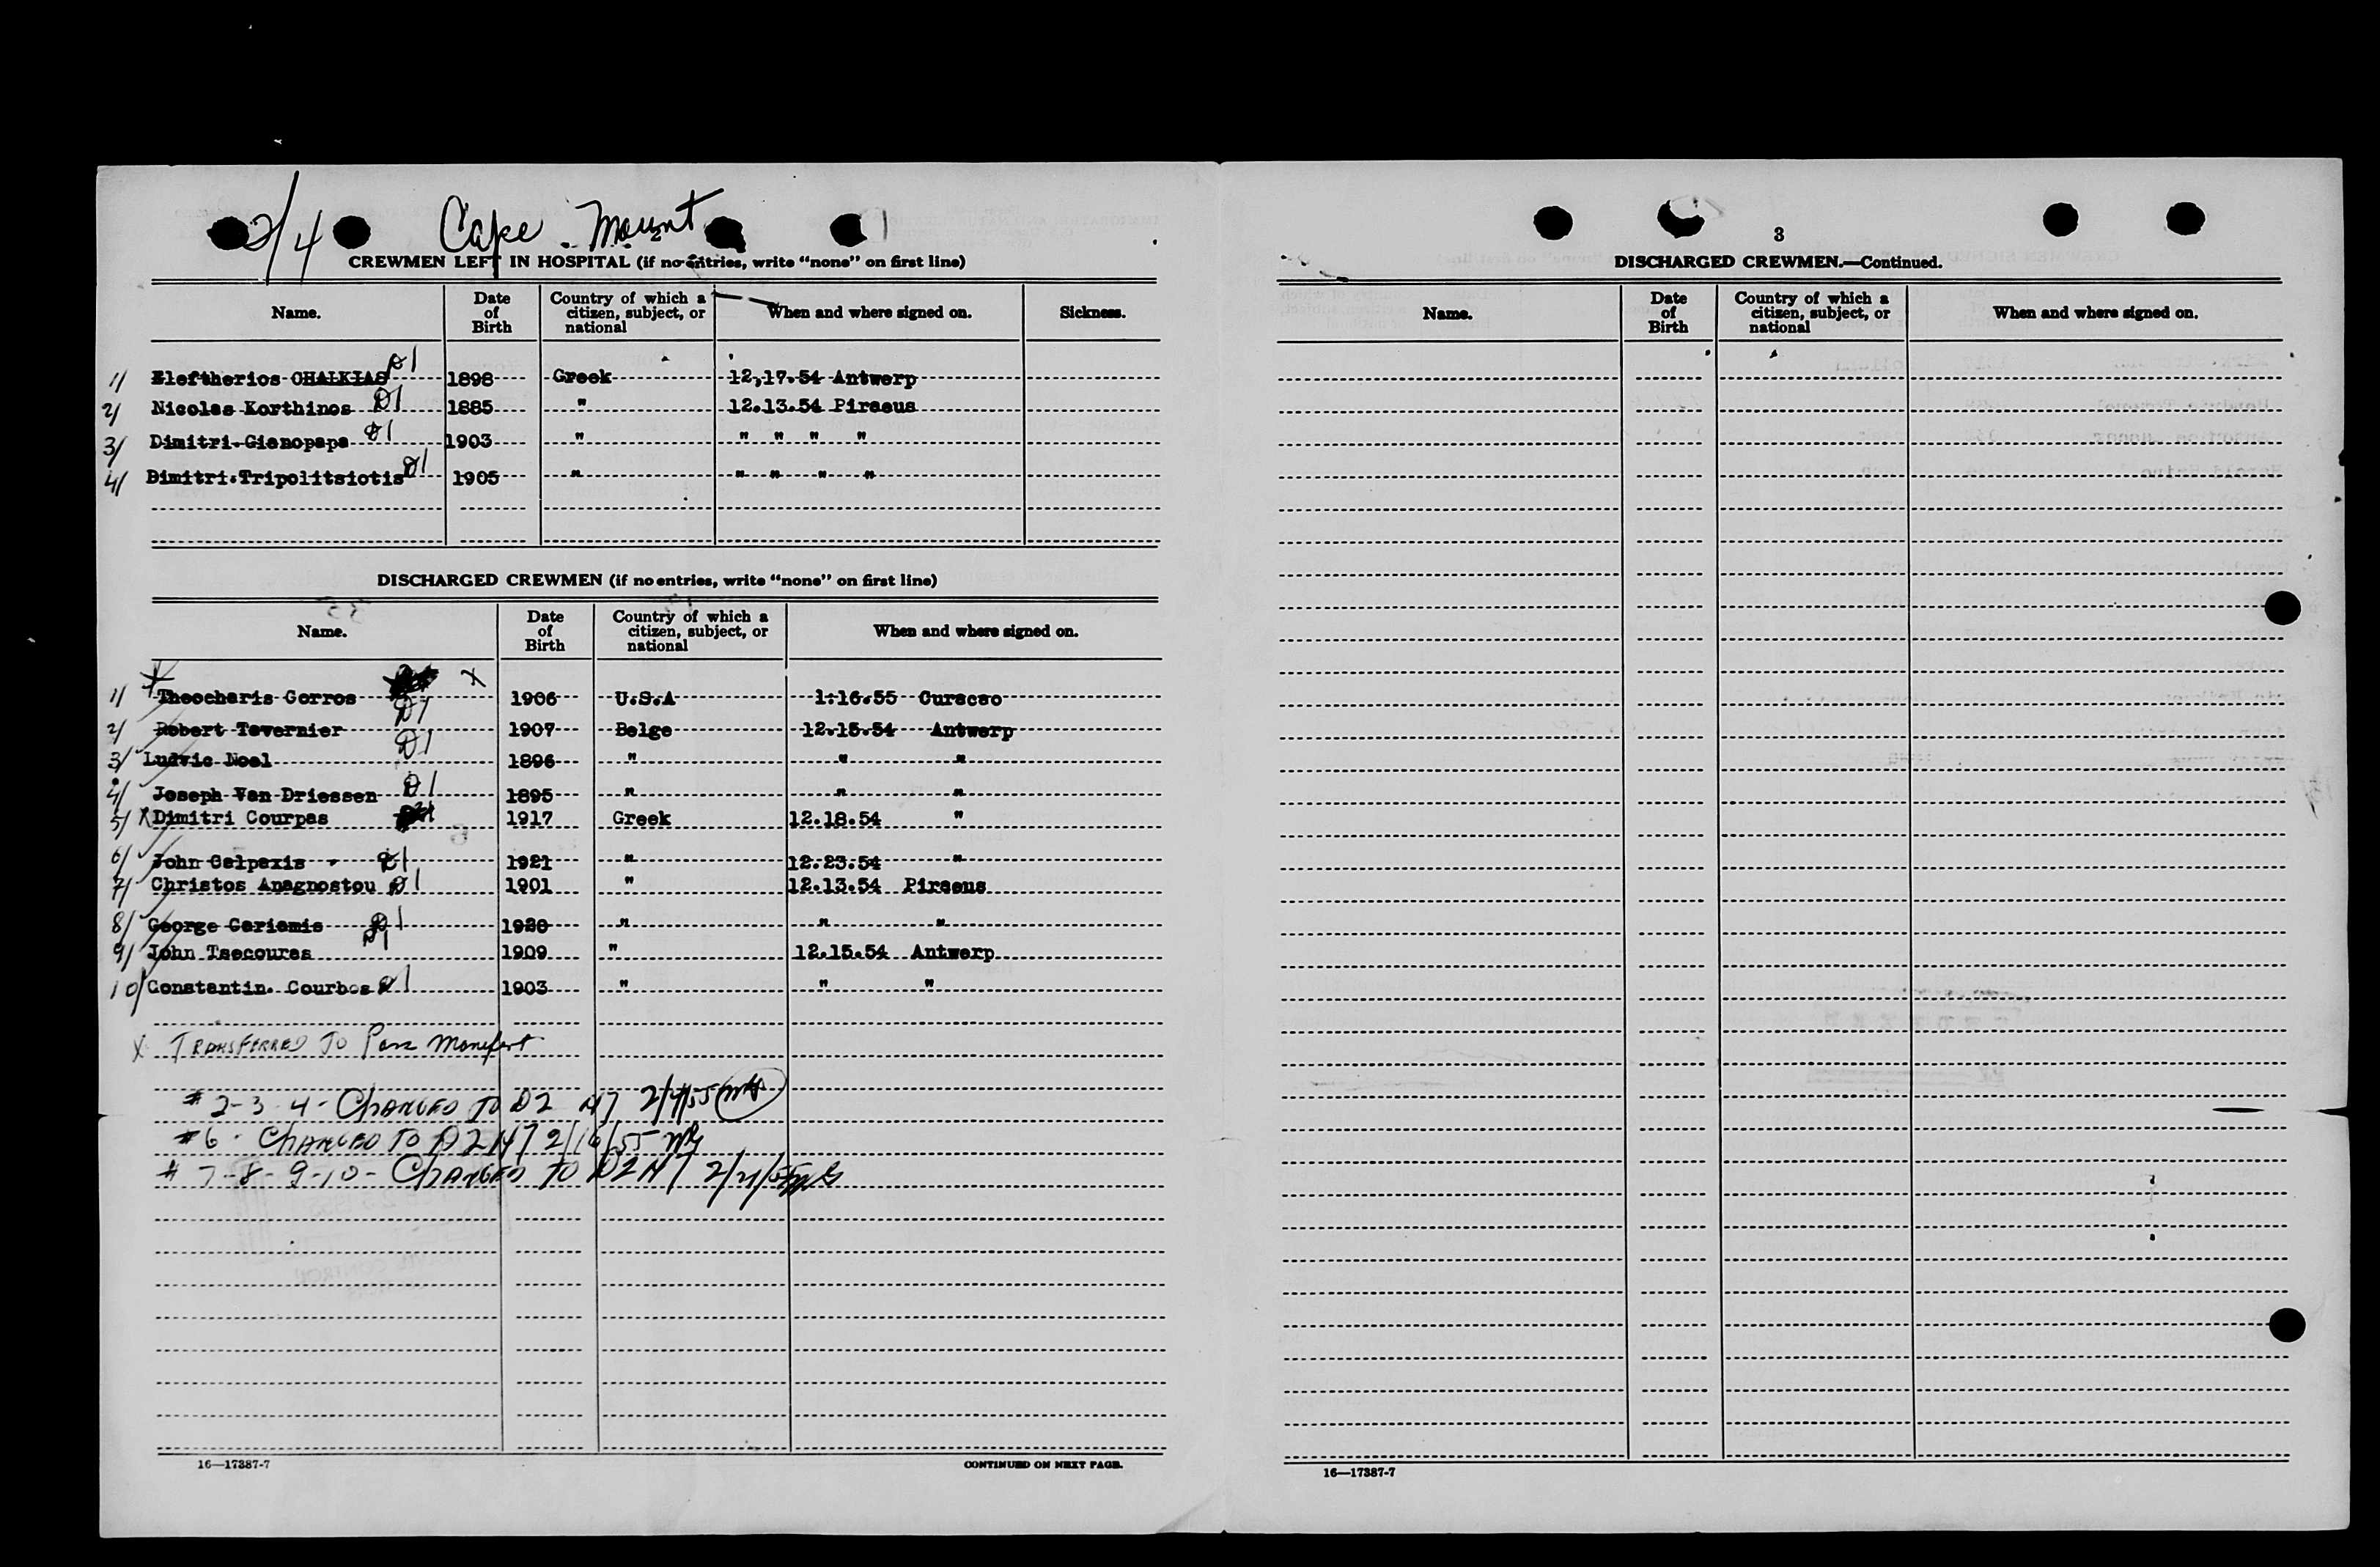 2/4 Cape Mount
CREWMEN LEFT IN HOSPITAL (if no entries, write "none" on first line)
Name. Date of Birth Country of which a citizen, subject, or national When and where signed on. Sickness.
1/ Eleftherios CHALKIAS D1 1898 Greek 12,17.54 Antwerp
2/ Nicolas Korthinos D1 1885 " 12.13.54 Piraeus
3/ Dimitri.Gianopapa D1 1903 " " " " "
4/ Dimitri.Tripolitsiotis D1 1905 " " " " "
DISCHARGED CREWMEN (if no entries, write "none" on first line)
Name. Date of Birth Country of which a citizen, subject, or national When and where signed on.
X X
1/ Theocharis Gorros 1906 U.S.A 1.16.55 Curacao
2/ Robert Tavernier D1 1907 Belge 12.15.54 Antwerp
3/ Ludvic Noel D1 1896 " " "
4/ Joseph Van Driessen D1 1895 " " "
5/ X Dimitri Courpas 1917 Greek 12.18.54 "
6/ John Calpaxis D1 1921 " 12.23.54 "
7/ Christos Anagnostou D1 1901 " 12.13.54 Piraeus
8/ George Cariamis D1 " " "
9/ John Tsacouras D1 1909 " 12.15.54 Antwerp
10/ Constantin. Courbos D1 1903 " " "
X TRANSFERRED TO Pass Manifest
# 2-3-4- CHANGED TO D2 N7 2/4/55
#6 - CHANGED TO D2 N7 2/16/55
# 7-8-9-10- CHANGED TO D2 N7 2/21/55
16—17387-7 CONTINUED ON NEXT PAGE.
3
DISCHARGED CREWMEN.—Continued.
Name. Date of Birth Country of which a citizen, subject, or national When and where signed on.
16—17387-7